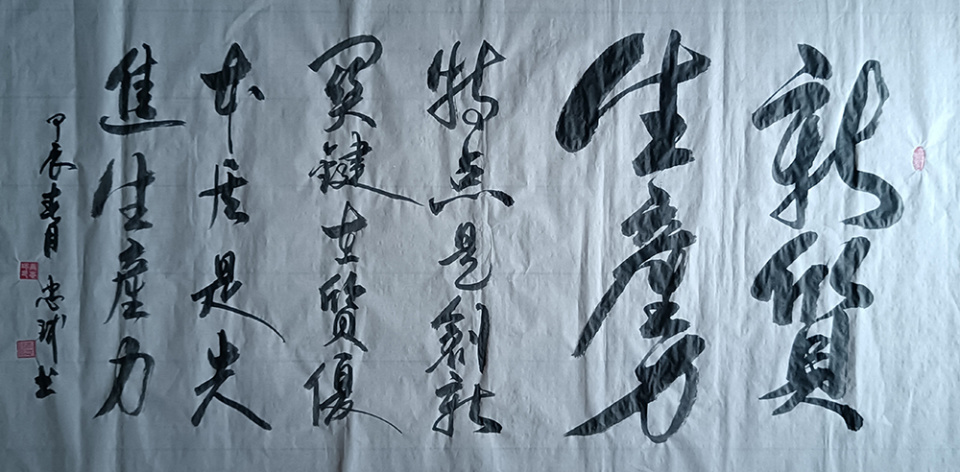 新質
生產力
特点是創新
關鍵在質優
本质是先
進生產力
甲辰春月 忠 书